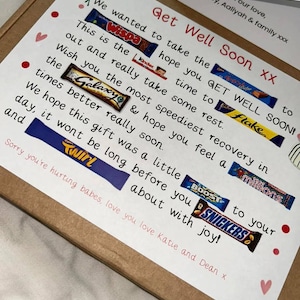 your love,
, Aaliyah & family xxx
Get Well Soon xx
We wanted to take the to
This is the I hope you GET WELL SOON!
out and really take some rest.
Wish you the most speediest recovery in
Galaxy & hope you feel a Flake
times better really soon.
We hope this gift was a little to your
day, it wont be long before you
Twirl Boost SNICKERS
about with joy!
Sorry you're hurting babea love you love Katie and Dean x